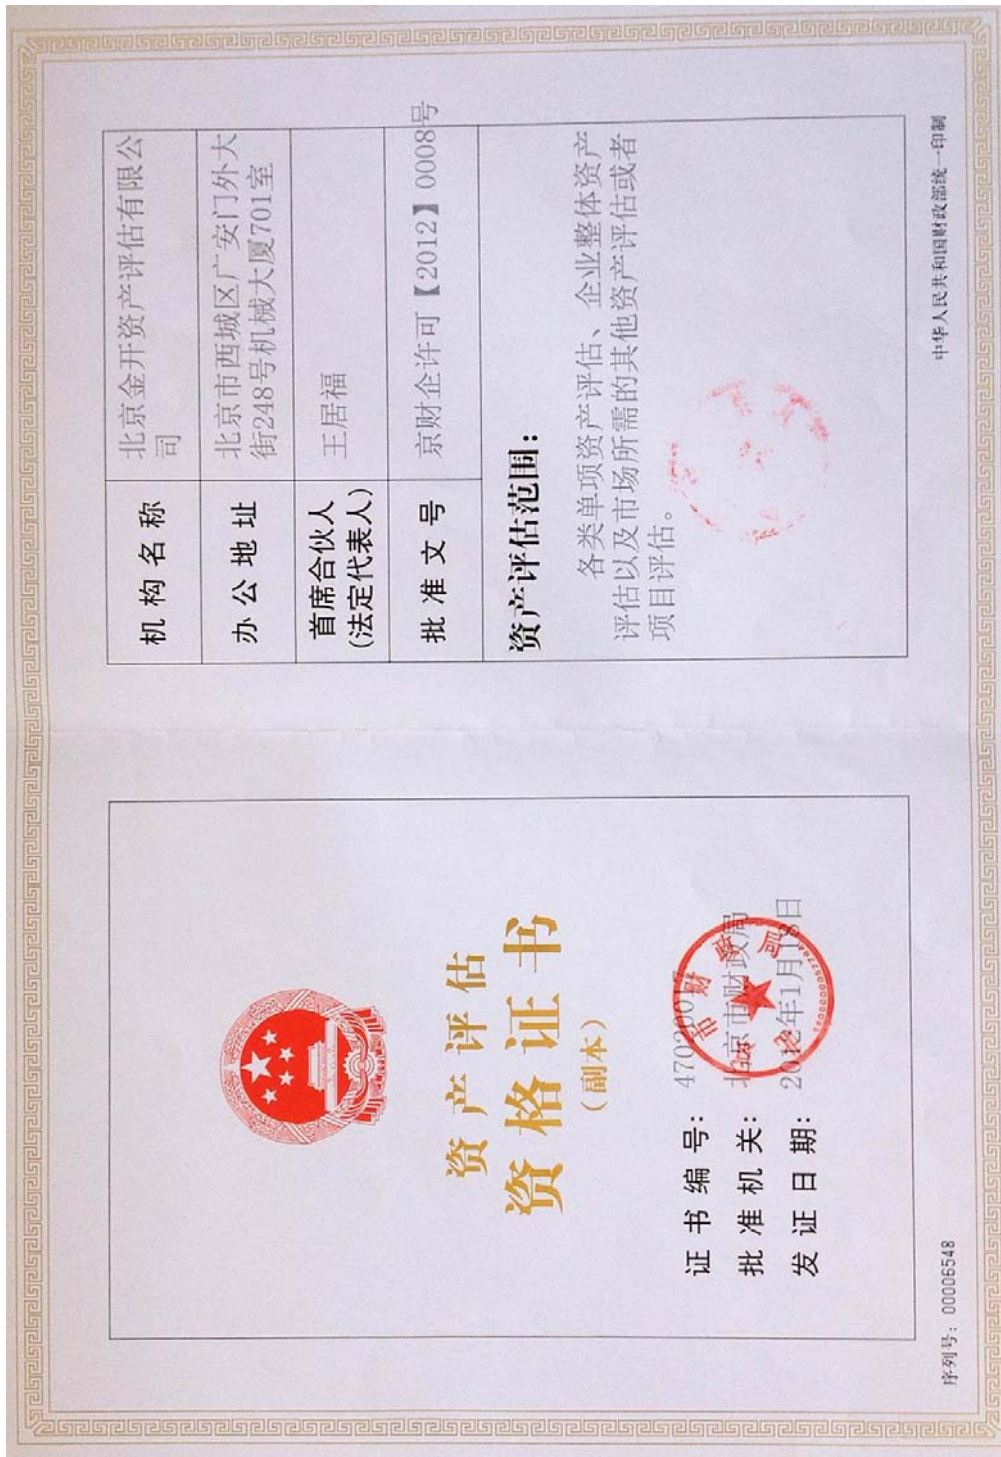 资产评估
资格证书
（副本）
证书编号： 47020017
批准机关： 北京市财政局
发证日期： 2012年1月18日
序列号：00006548
机构名称 北京金开资产评估有限公
司
办公地址 北京市西城区广安门外大
街248号机械大厦701室
首席合伙人
（法定代表人） 王居福
批准文号 京财企许可【2012】0008号
资产评估范围：
各类单项资产评估、企业整体资产
评估以及市场所需的其他资产评估或者
项目评估。
中华人民共和国财政部统一印制